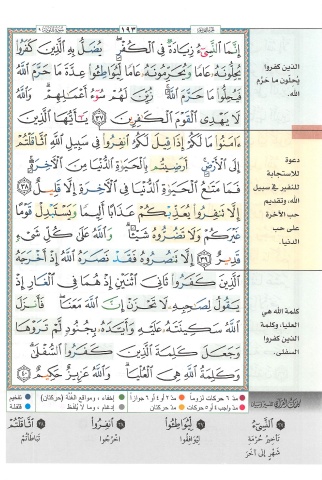 ١٩٣
إِنَّمَا ٱلنَّسِىٓءُ زِيَادَةٌ فِى ٱلْكُفْرِ ۖ يُضَلُّ بِهِ ٱلَّذِينَ كَفَرُوا۟
يُحِلُّونَهُۥ عَامًا وَيُحَرِّمُونَهُۥ عَامًا لِّيُوَاطِـُٔوا۟ عِدَّةَ مَا حَرَّمَ ٱللَّهُ
فَيُحِلُّوا۟ مَا حَرَّمَ ٱللَّهُ ۚ زُيِّنَ لَهُمْ سُوٓءُ أَعْمَـٰلِهِمْ ۗ وَٱللَّهُ
لَا يَهْدِى ٱلْقَوْمَ ٱلْكَـٰفِرِينَ ٣٧ يَـٰٓأَيُّهَا ٱلَّذِينَ
ءَامَنُوا۟ مَا لَكُمْ إِذَا قِيلَ لَكُمُ ٱنفِرُوا۟ فِى سَبِيلِ ٱللَّهِ ٱثَّاقَلْتُمْ
إِلَى ٱلْأَرْضِ ۚ أَرَضِيتُم بِٱلْحَيَوٰةِ ٱلدُّنْيَا مِنَ ٱلْـَٔاخِرَةِ ۚ
فَمَا مَتَـٰعُ ٱلْحَيَوٰةِ ٱلدُّنْيَا فِى ٱلْـَٔاخِرَةِ إِلَّا قَلِيلٌ ٣٨
إِلَّا تَنفِرُوا۟ يُعَذِّبْكُمْ عَذَابًا أَلِيمًا وَيَسْتَبْدِلْ قَوْمًا
غَيْرَكُمْ وَلَا تَضُرُّوهُ شَيْـًٔا ۗ وَٱللَّهُ عَلَىٰ كُلِّ شَىْءٍ
قَدِيرٌ ٣٩ إِلَّا تَنصُرُوهُ فَقَدْ نَصَرَهُ ٱللَّهُ إِذْ أَخْرَجَهُ
ٱلَّذِينَ كَفَرُوا۟ ثَانِىَ ٱثْنَيْنِ إِذْ هُمَا فِى ٱلْغَارِ إِذْ
يَقُولُ لِصَـٰحِبِهِۦ لَا تَحْزَنْ إِنَّ ٱللَّهَ مَعَنَا ۖ فَأَنزَلَ
ٱللَّهُ سَكِينَتَهُۥ عَلَيْهِ وَأَيَّدَهُۥ بِجُنُودٍ لَّمْ تَرَوْهَا
وَجَعَلَ كَلِمَةَ ٱلَّذِينَ كَفَرُوا۟ ٱلسُّفْلَىٰ ۗ
وَكَلِمَةُ ٱللَّهِ هِىَ ٱلْعُلْيَا ۗ وَٱللَّهُ عَزِيزٌ حَكِيمٌ ٤٠
الذين كفروا
يُحلون ما حرّم
الله.
دعوة
للاستجابة
للنفير في سبيل
الله، وتقديم
حب الآخرة
على حب
الدنيا.
كلمة الله هي
العليا، وكلمة
الذين كفروا
السفلى.
مدّ ٦ حركات لزوماً مدّ ٢ أو ٤ أو ٦ جوازاً إخفاء، ومواقع الغُنَّة (حركتان) تفخيم
مدّ واجب ٤ أو ٥ حركات مدّ حركتان إدغام، وما لا يُلفَظ قلقلة
٣٧ ٱلنَّسِىٓءُ
تأخيرُ حُرْمَةِ
شَهْرٍ إلى آخَرَ
٣٧ لِّيُوَاطِـُٔوا۟
لِيُوافِقُوا
٣٨ ٱنفِرُوا۟
اخرُجوا
٣٨ ٱثَّاقَلْتُمْ
تَباطَأْتُم